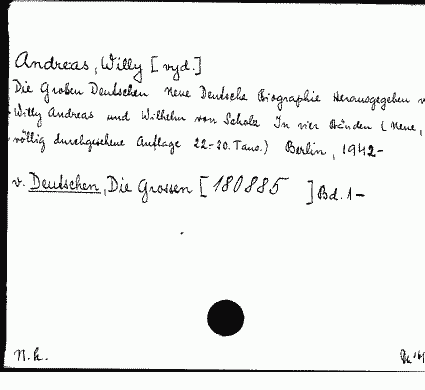 Andreas, Willy [vyd.]
Die Großen Deutschen Neue Deutsche Biographie Herausgegeben v
Willy Andreas und Wilhelm von Scholz In vier Bänden (Neue,
völlig durchgesehene Auflage 22.-30. Taus.) Berlin, 1942-
v. Deutschen, Die Grossen [180885 ] Bd. 1-
N.k.